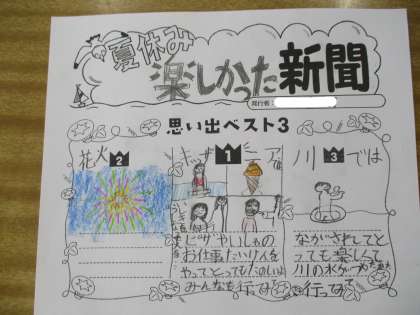 夏休み
楽しかった新聞
発行者:
思い出ベスト3
花火
2
キッザニア
1
川では
3
ピザやいしゃの
お仕事たいけんを
やってとってもたのしい
みんなも行
ながされてと
っても楽しくて
川の水
行って